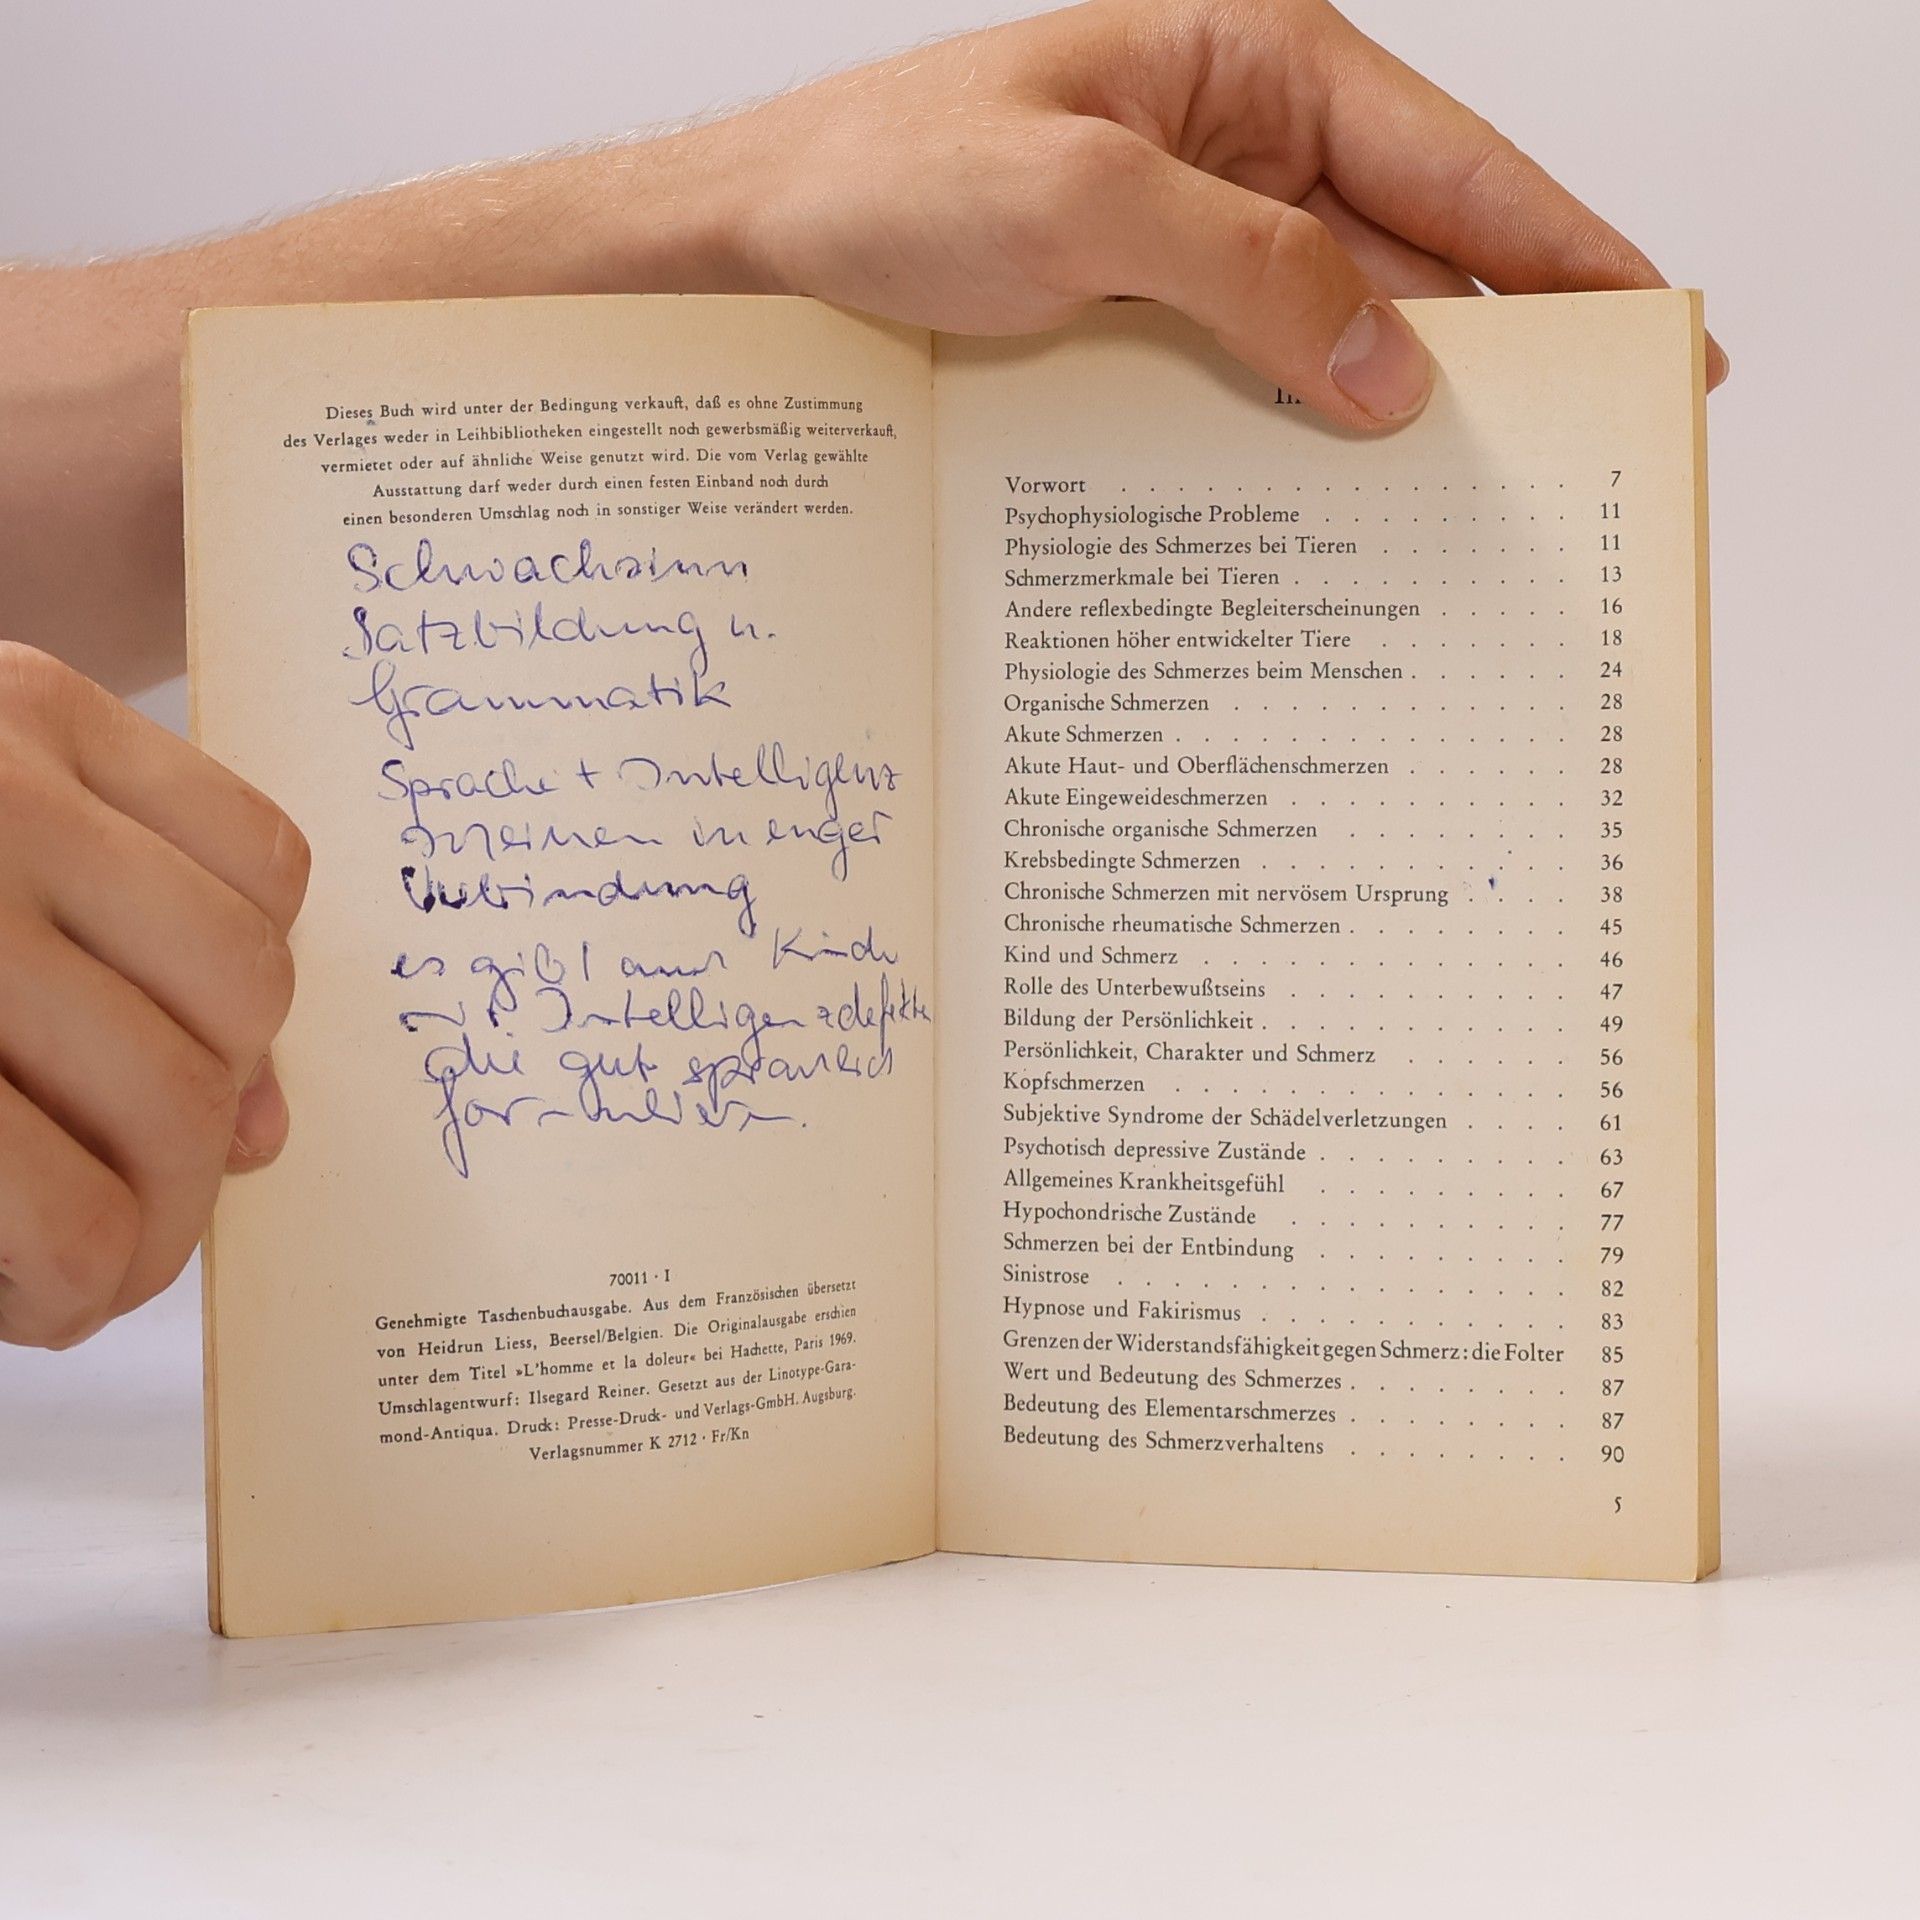 Dieses Buch wird unter der Bedingung verkauft, daß es ohne Zustimmung
des Verlages weder in Leihbibliotheken eingestellt noch gewerbsmäßig weiterverkauft,
vermietet oder auf ähnliche Weise genutzt wird. Die vom Verlag gewählte
Ausstattung darf weder durch einen festen Einband noch durch
einen besonderen Umschlag noch in sonstiger Weise verändert werden.
Schwachsinn
Satzbildung u.
Grammatik
Sprache + Intelligenz
in enger
Verbindung
es gibt auch Kinder
Intelligenzdefekten
die gut sprachlich
formulieren.
70011 · I
Genehmigte Taschenbuchausgabe. Aus dem Französischen übersetzt
von Heidrun Liess, Beersel/Belgien. Die Originalausgabe erschien
unter dem Titel »L'homme et la doleur« bei Hachette, Paris 1969.
Umschlagentwurf: Ilsegard Reiner. Gesetzt aus der Linotype-Gara-
mond-Antiqua. Druck: Presse-Druck- und Verlags-GmbH. Augsburg.
Verlagsnummer K 2712 · Fr/Kn
Vorwort . . . . . . . . . . . . . . . . 7
Psychophysiologische Probleme . . . . . . . . . 11
Physiologie des Schmerzes bei Tieren . . . . . . . 11
Schmerzmerkmale bei Tieren . . . . . . . . . . 13
Andere reflexbedingte Begleiterscheinungen . . . . . 16
Reaktionen höher entwickelter Tiere . . . . . . . 18
Physiologie des Schmerzes beim Menschen . . . . . . 24
Organische Schmerzen . . . . . . . . . . . . 28
Akute Schmerzen . . . . . . . . . . . . . . 28
Akute Haut- und Oberflächenschmerzen . . . . . . 28
Akute Eingeweideschmerzen . . . . . . . . . . 32
Chronische organische Schmerzen . . . . . . . . 35
Krebsbedingte Schmerzen . . . . . . . . . . . 36
Chronische Schmerzen mit nervösem Ursprung . . . . 38
Chronische rheumatische Schmerzen . . . . . . . . 45
Kind und Schmerz . . . . . . . . . . . . . 46
Rolle des Unterbewußtseins . . . . . . . . . . 47
Bildung der Persönlichkeit . . . . . . . . . . . 49
Persönlichkeit, Charakter und Schmerz . . . . . . 56
Kopfschmerzen . . . . . . . . . . . . . . 56
Subjektive Syndrome der Schädelverletzungen . . . . 61
Psychotisch depressive Zustände . . . . . . . . . 63
Allgemeines Krankheitsgefühl . . . . . . . . . 67
Hypochondrische Zustände . . . . . . . . . . 77
Schmerzen bei der Entbindung . . . . . . . . . 79
Sinistrose . . . . . . . . . . . . . . . . 82
Hypnose und Fakirismus . . . . . . . . . . . 83
Grenzen der Widerstandsfähigkeit gegen Schmerz: die Folter 85
Wert und Bedeutung des Schmerzes . . . . . . . . 87
Bedeutung des Elementarschmerzes . . . . . . . . 87
Bedeutung des Schmerzverhaltens . . . . . . . . 90
5